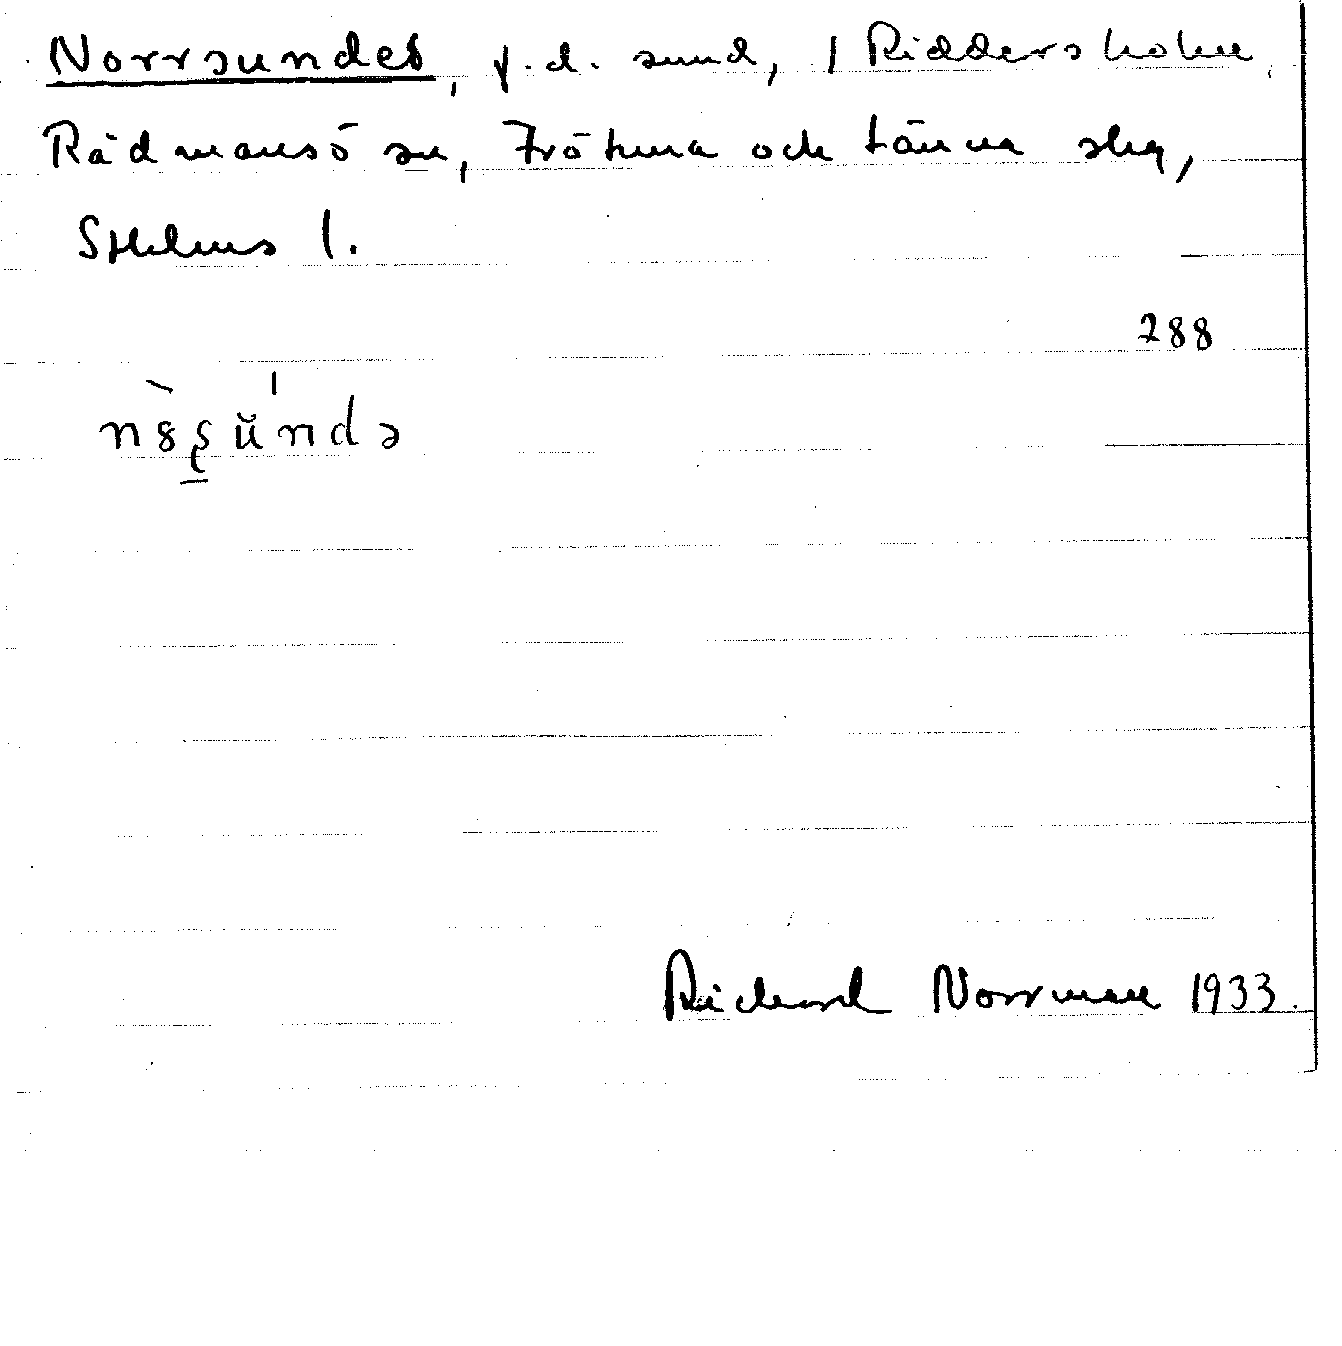 Norrsundet, f.d. sund, 1 Riddersholm,
Rådmansö sn, Frötuna och Länna slg,
Sthlms l.
288
n8ʂŭndə
Richard Norrman 1933.